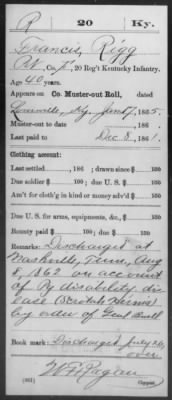 R | 20 | Ky.
Francis Rigg
Pvt, Co. , 20 Reg't Kentucky Infantry.
Age 40 years.
Appears on Co. Muster-out Roll, dated
Louisville, Ky., Jan 17, 1865.
Muster-out to date , 186 .
Last paid to Dec 3, 1861.
Clothing account:
Last settled , 186 ; drawn since $ 100
Due soldier $ 100; due U. S. $ 100
Am't for cloth'g in kind or money adv'd $ 100
Due U. S. for arms, equipments, &c., $ 100
Bounty paid $ 100; due $ 100
Remarks: Discharged at
Nashville, Tenn, Aug
8, 1862 on account
of disability dis
ease (Scrotal Hernia)
by order of Genl Buell
Book mark: Discharged July 26,
over
Ragan
(861) Copyist.